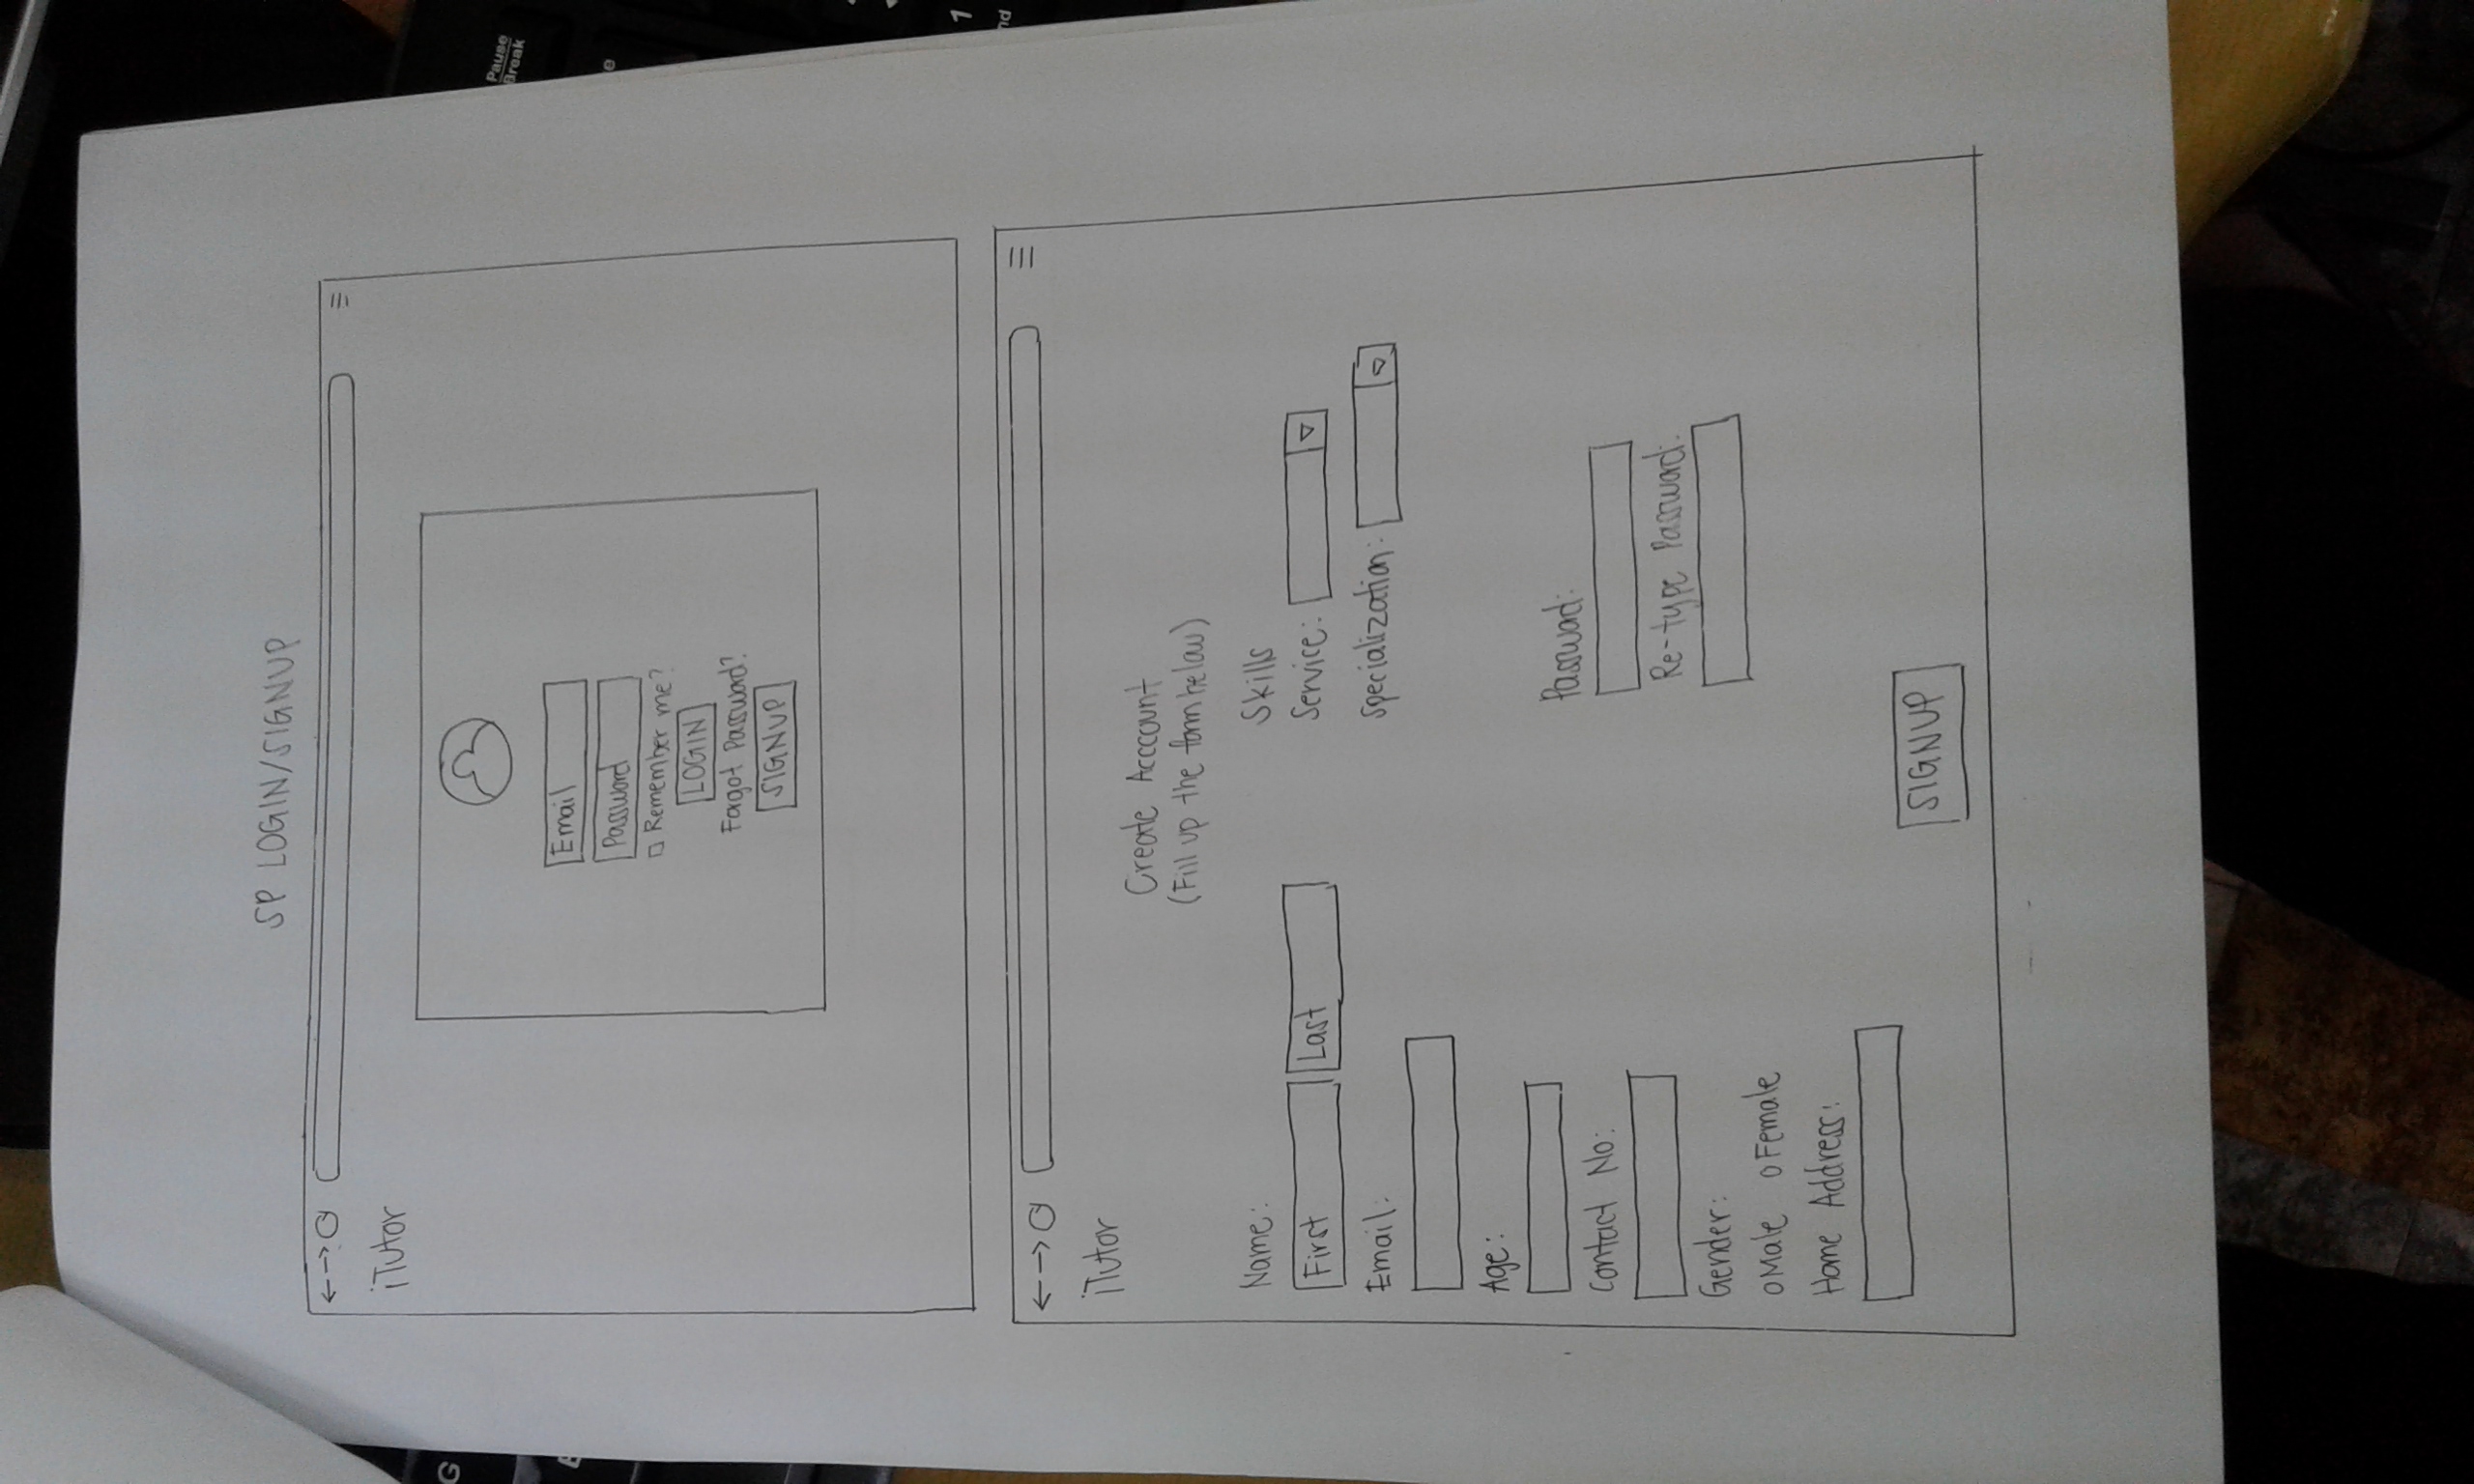 SP LOGIN/SIGNUP
iTutor
Email
Password
Remember me?
LOGIN
Forgot Password?
SIGNUP
iTutor
Create Acccount
(Fill up the form below)
Name:
First Last
Email:
Age:
Contact No:
Gender:
Male Female
Home Address:
Skills
Service:
Specialization:
Password:
Re-type Password:
SIGNUP
G
Pause
Break
e
1
nd